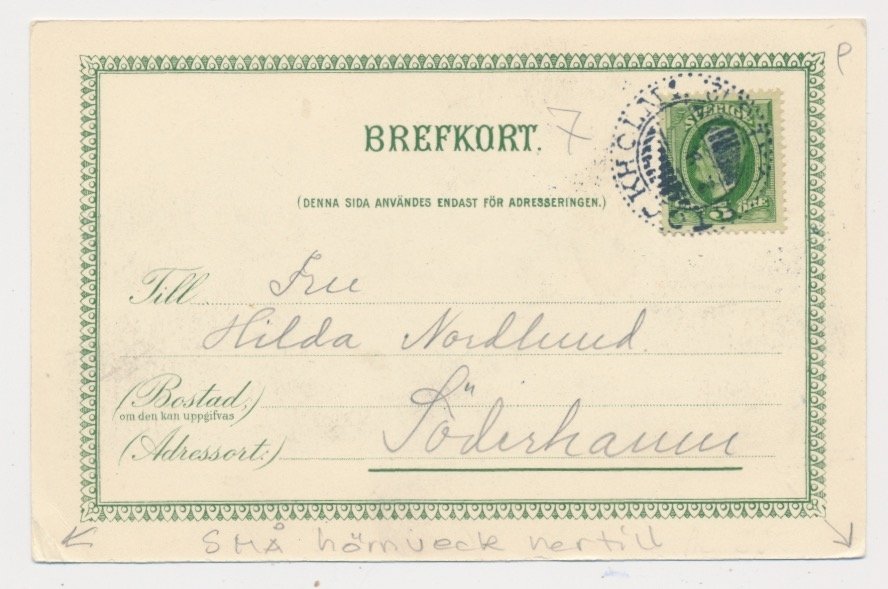 P
BREFKORT. 7
SVERIGE
STOCKHOLM
5 ÖRE
(DENNA SIDA ANVÄNDES ENDAST FÖR ADRESSERINGEN.)
Till Fru
Hilda Nordlund.
(Bostad,)
om den kan uppgifvas
(Adressort:) Söderhamn
SMÅ hörnveck nertill